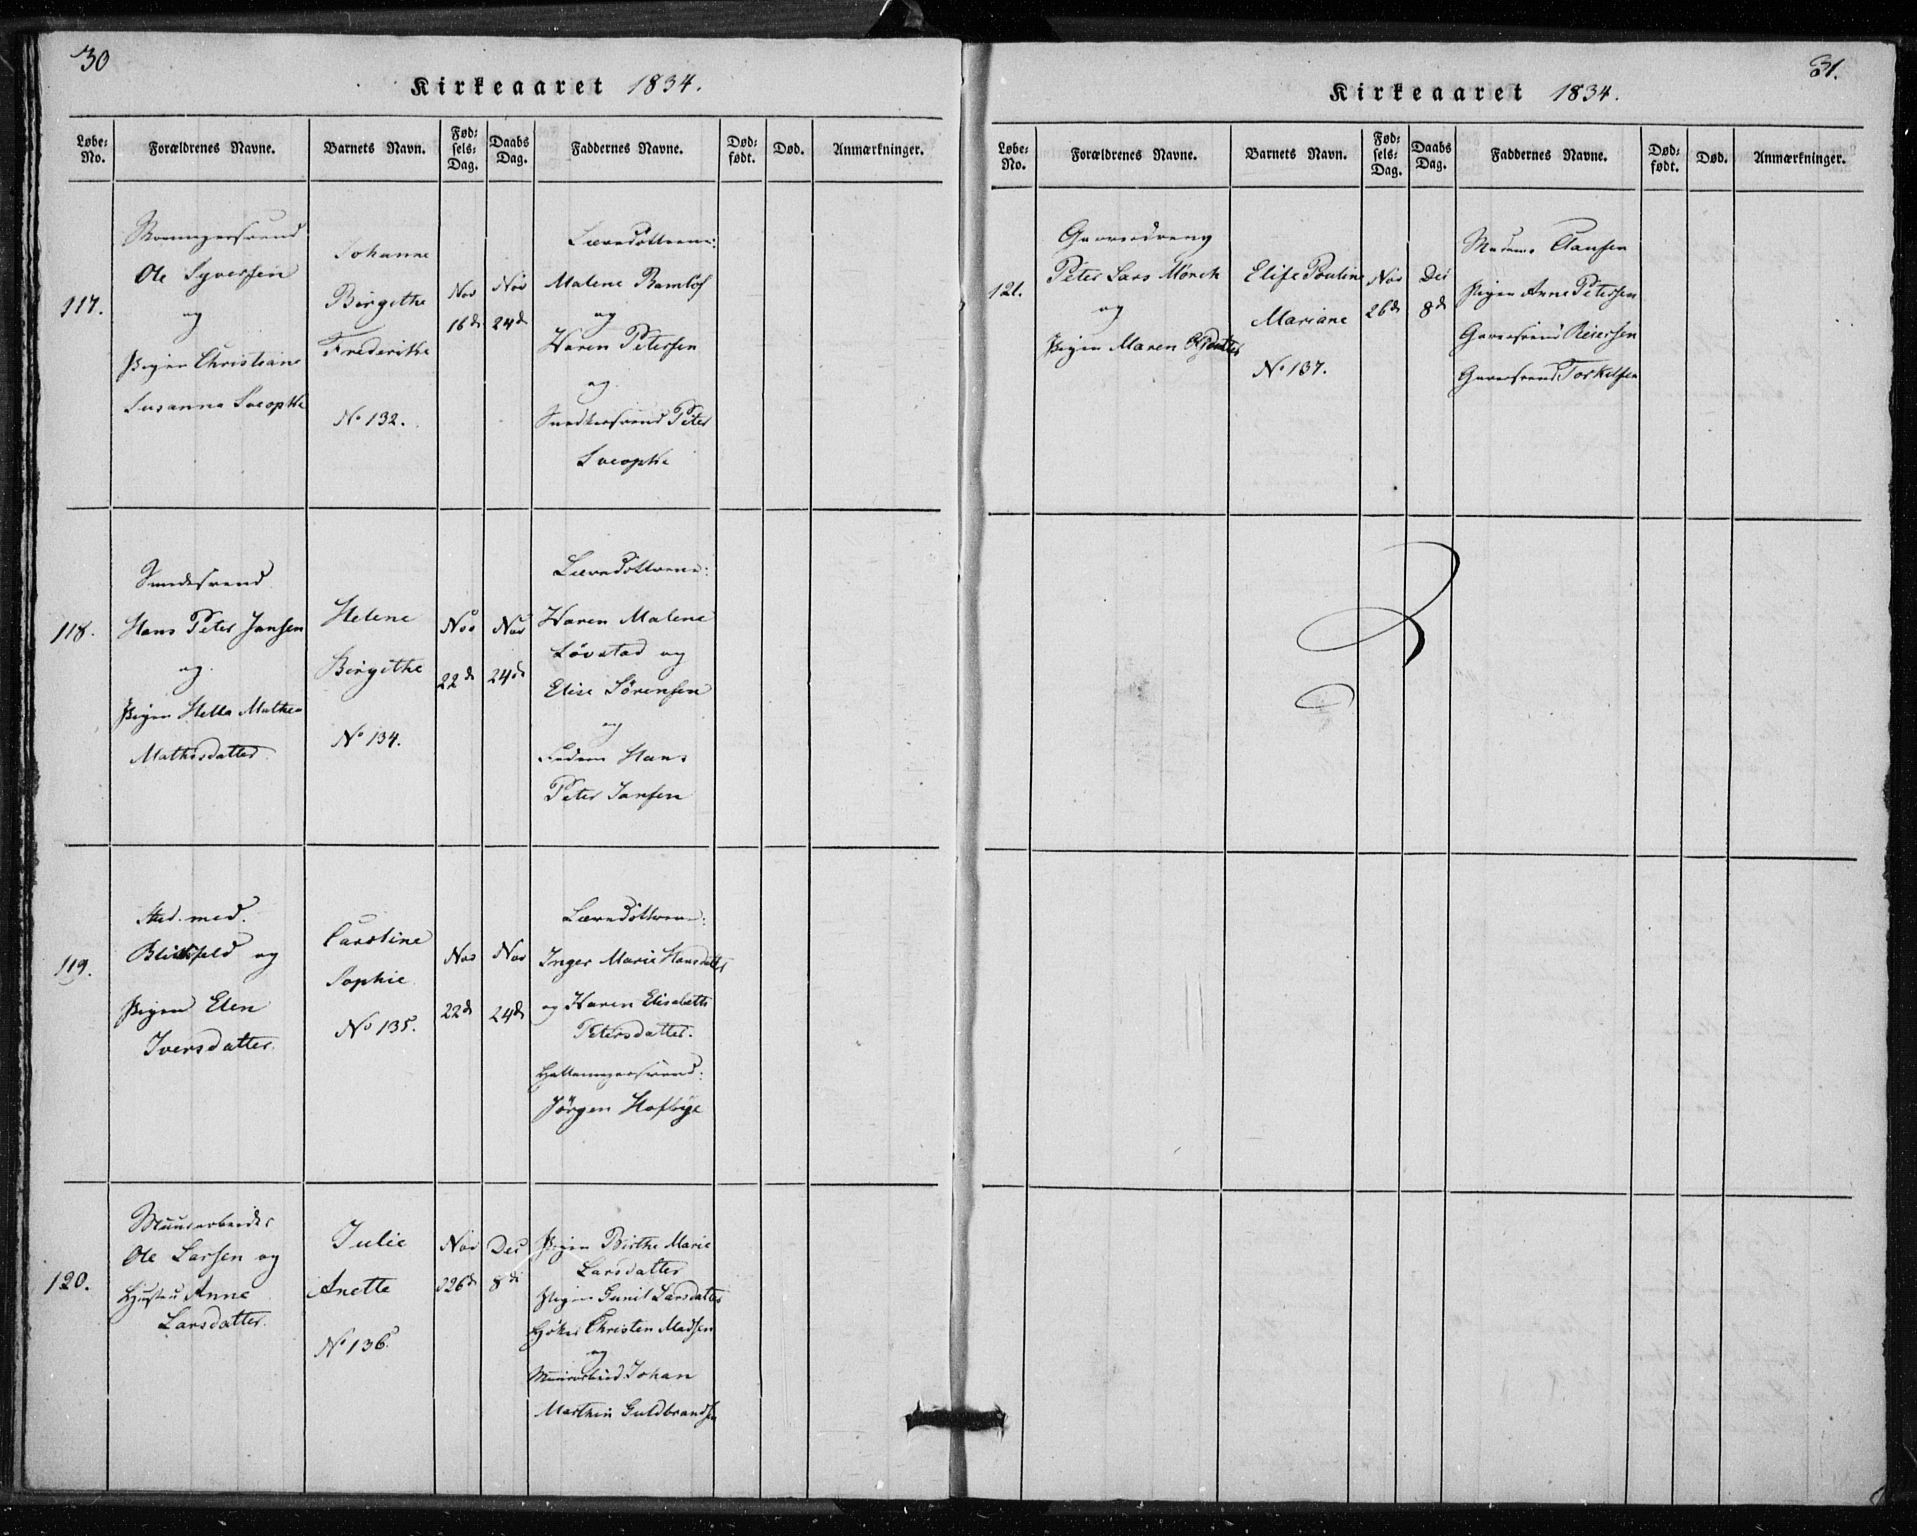 30
Kirkeaaret 1834.
Løbe-No.
Forældrenes Navne.
Barnets Navn.
Fød-sels-Dag.
Daabs Dag.
Faddernes Navne.
Død-født.
Død.
Anmærkninger.
117.
Ole Syversen
og
Pigen Christiane
Susanna
Johanne
Birgithe
Frederikke
No 132.
Nov
16de
Nov
24de
Malene Ramlos
og
Karen Petersen
og
Peter
118.
Hans Peter Jansen
og
Pigen Mathea
Mathisdatter
Helene
Birgithe
No 134.
Nov
22de
Nov
24de
Karen Malene
Løvstad og
Elise Sørensen
og
Hans
Peter Jansen
119.
Stud. med.
Blichfeld og
Pigen Elen
Iversdatter.
Caroline
Sophie
No 135.
Nov
22de
Nov
24de
Inger Marie Hansdatter
og Karen Elisabeth
Petersdatter.
Jørgen
120.
Muurarbeider
Ole Larsen og
Hustru Anne
Larsdatter.
Julie
Anette
No 136.
Nov
26de
Dec
8de
Pigen Birthe Marie
Larsdatter
Pigen Gunil Larsdatter
Christen Madsen
og
Johan
Marthin Guldbrandsen
31.
Kirkeaaret 1834.
Løbe-No.
Forældrenes Navne.
Barnets Navn.
Fød-sels-Dag.
Daabs Dag.
Faddernes Navne.
Død-født.
Død.
Anmærkninger.
121.
Peter Lars Mørch
og
Pigen Maren
Elise Pouline
Mariane
No 137.
Nov
26de
Dec
8de
Madame Clausen
Pigen Anne Petersen
Reiersen
Torkelsen